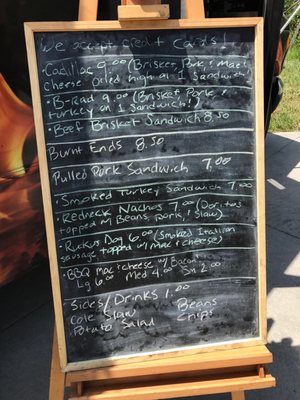 We accept credit cards!
Cadillac 9.00 (Brisket, Pork, & mac &
cheese piled high on 1 Sandwich)
• B-Rad 9.00 (Brisket Pork, &
turkey on 1 Sandwich!)
• Beef Brisket Sandwich 8.50
Burnt Ends 8.50
Pulled Pork Sandwich 7.00
• Smoked Turkey Sandwich 7.00
• Redneck Nachos 7.00 (Doritos
topped w/ Beans, pork, & Slaw)
• Ruckus Dog 6.00 (Smoked Italian
sausage topped w/ mac & cheese)
• BBQ mac & cheese w/ Bacon
Lg 6.00 Med 4.00 Sm 2.00
Sides/Drinks 1.00
Cole Slaw Beans
Potato Salad Chips